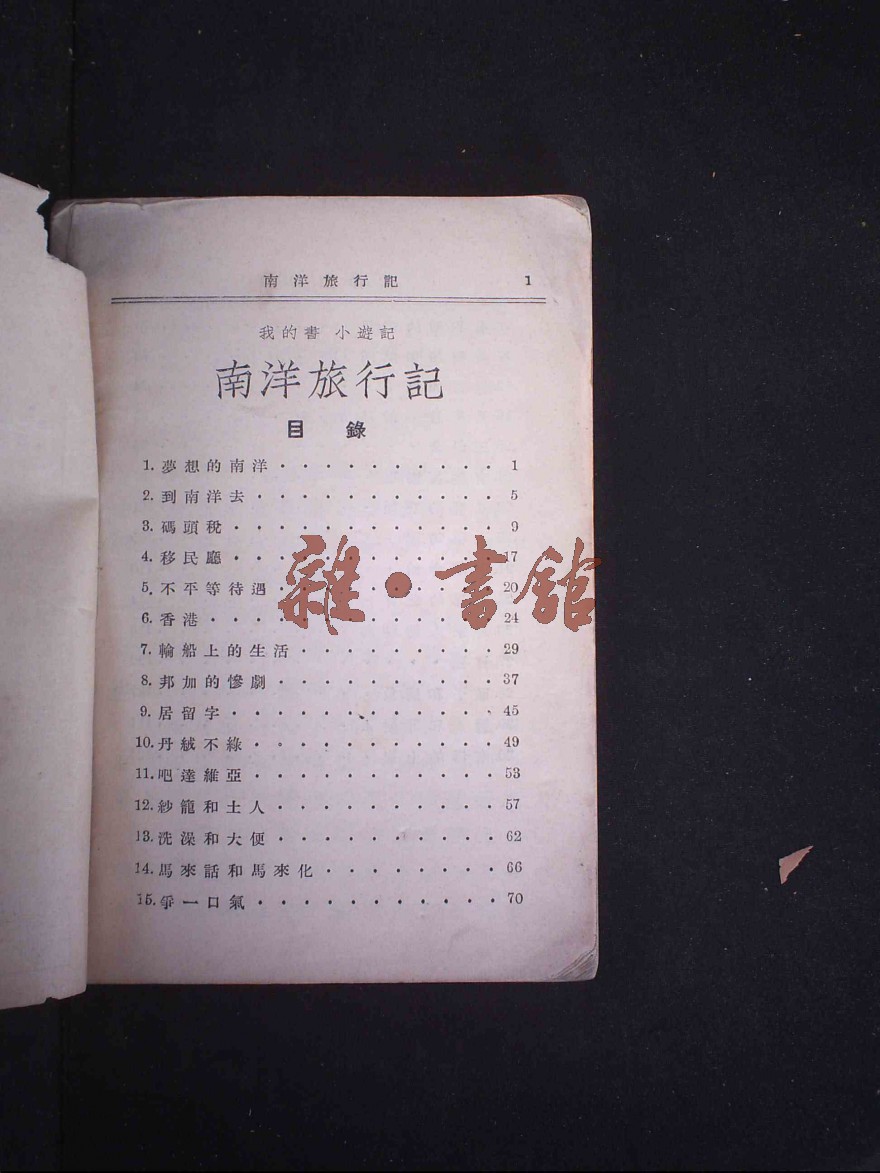 南洋旅行記 1
我的書 小遊記
南洋旅行記
目錄
1. 夢想的南洋 · · · · · · · · · · 1
2. 到南洋去 · · · · · · · · · · · 5
3. 碼頭稅 · · · · · · · · · · · · 9
4. 移民廳 · · · · · · · · · · · · 17
5. 不平等待遇 · · · · · · · · · · 20
6. 香港 · · · · · · · · · · · · · 24
7. 輪船上的生活 · · · · · · · · · 29
8. 邦加的慘劇 · · · · · · · · · · 37
9. 居留字 · · · · · · · · · · · · 45
10. 丹絨不綠 · · · · · · · · · · · 49
11. 吧達維亞 · · · · · · · · · · · 53
12. 紗籠和土人 · · · · · · · · · · 57
13. 洗澡和大便 · · · · · · · · · · 62
14. 馬來話和馬來化 · · · · · · · · 66
15. 爭一口氣 · · · · · · · · · · · 70
雜·書館